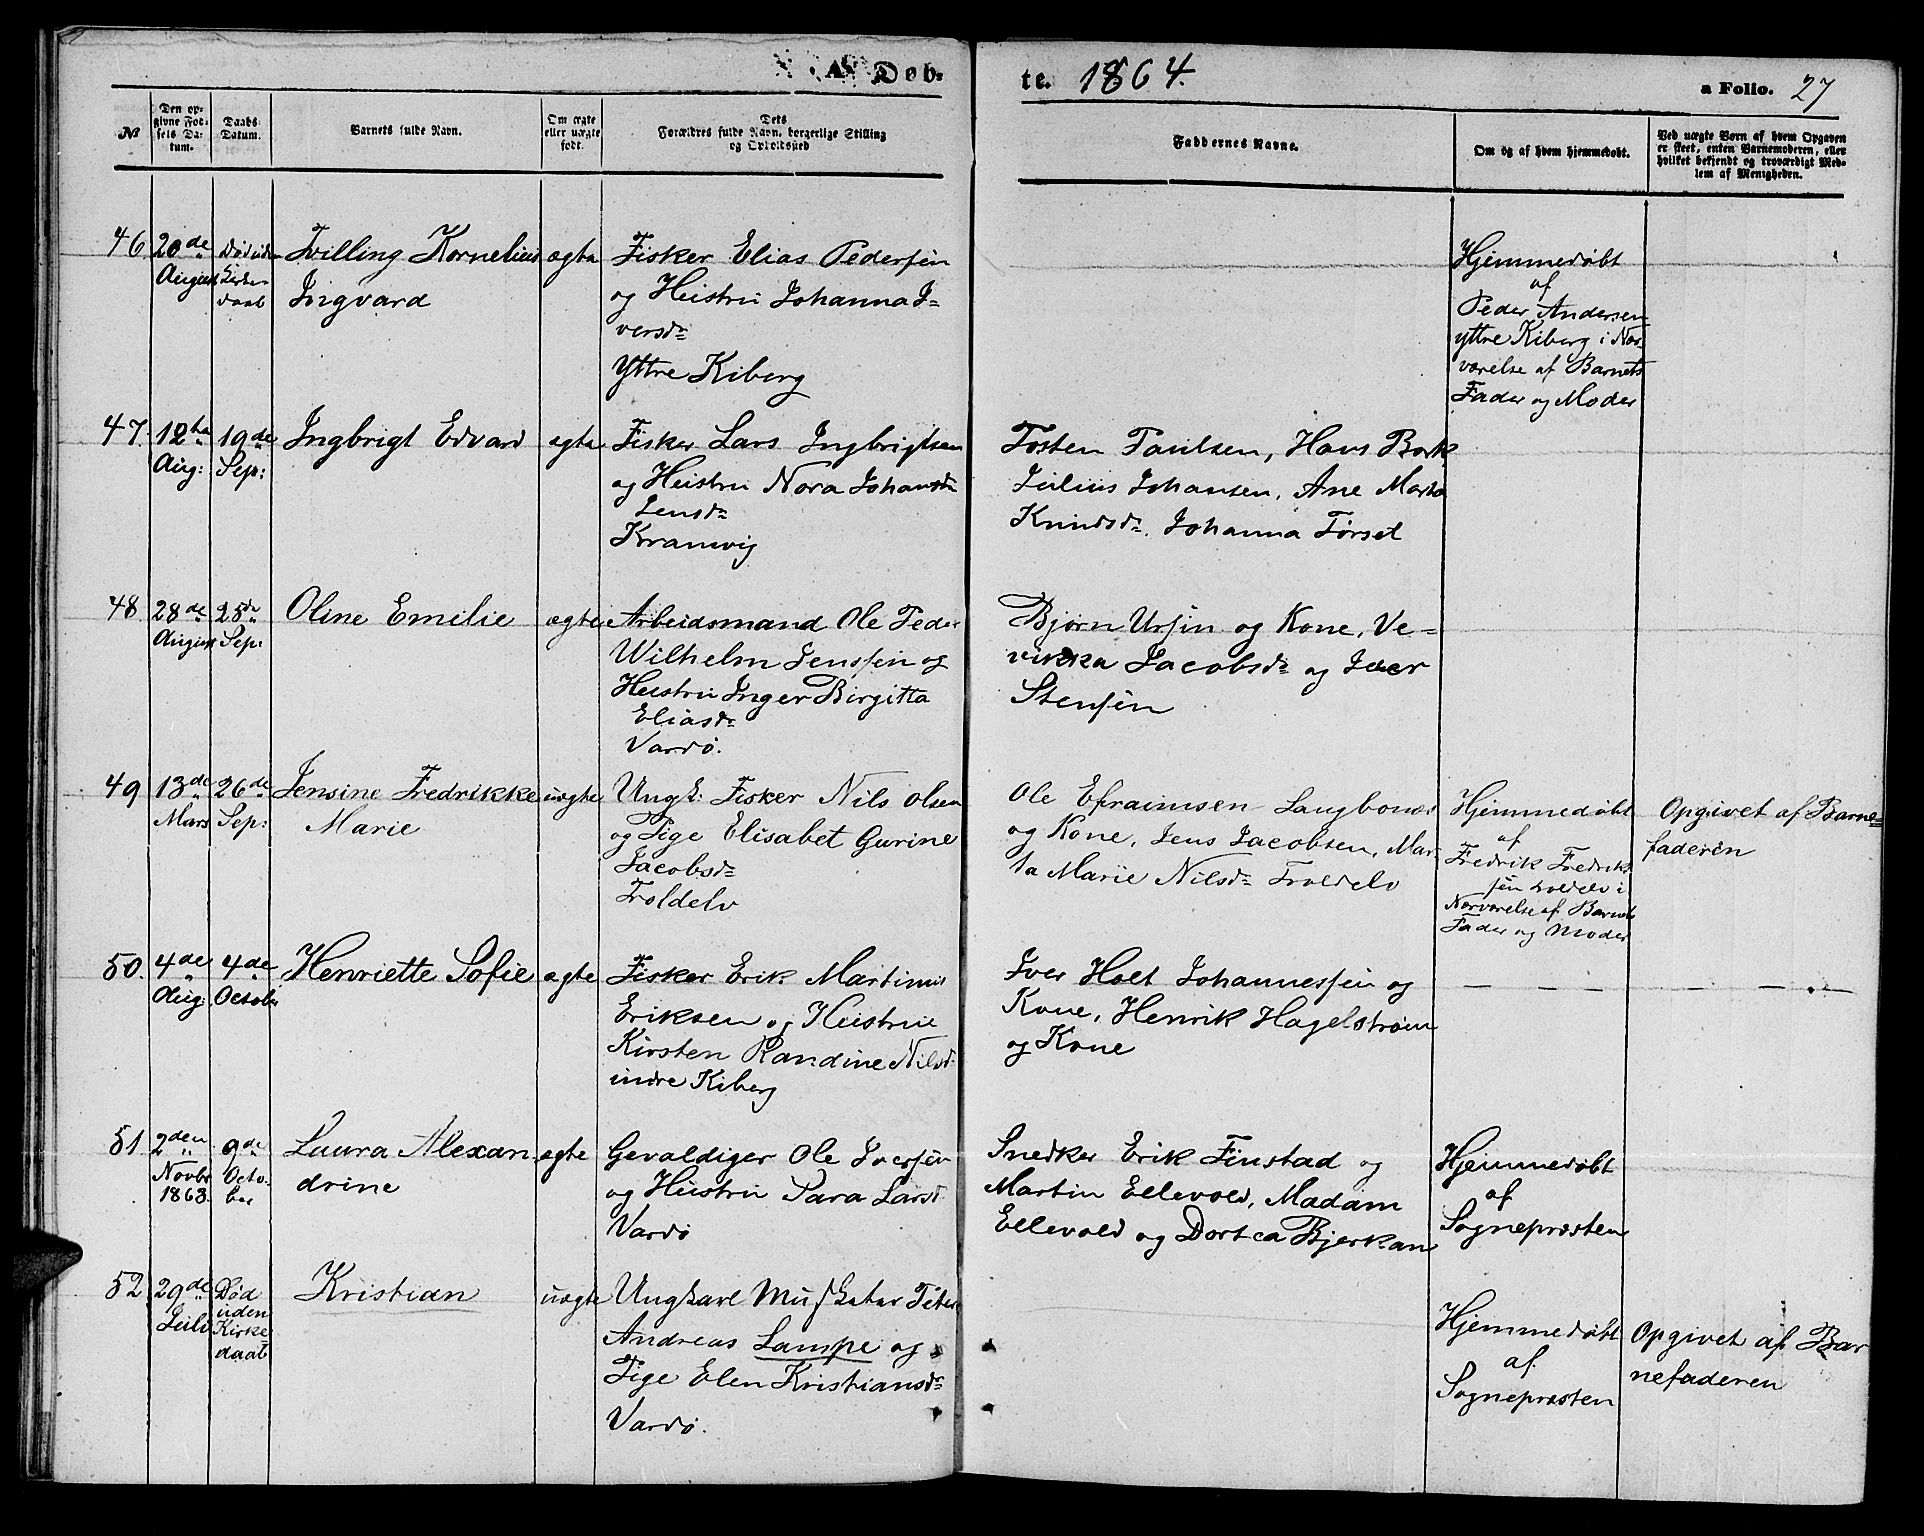 A. Døb-
te. 1864.
a Folio. 27
No
Den op-
givne Fød-
sels Da-
tum.
Daabs
Datum.
Barnets fulde Navn.
Om ægte
eller uægte
født.
Dets
Forældres fulde Navn, borgerlige Stilling
og Opholdssted
Faddernes Navne.
Om og af hvem hjemmedøbt.
Ved uægte Børn af hvem Opgaven
er skeet, enten Barnemoderen, eller
hvilket bekjendt og troværdigt Med-
lem af Menigheden.
46 20de August
Død uden
Kirke-
daab
Tvilling Kornelius
Ingvard
ægte
Fisker Elias Pedersen
og Hustru Johanna I-
versdr
Yttre Kiberg
Hjemmedøbt
af
Peder Andersen
yttre Kiberg i Nær-
værelse af Barnets
Fader og Moder
47 12te Aug:
19de Sep:
Ingbrigt Edvard
ægte
Fisker Lars Ingbrigtsen
og Hustru Nora Johansdr
Jensdr
Kramvig
Tosten Paulsen, Hans Bork
Julius Johansen, Ane Marta
Knudsdr, Johanna Tørset
48 28de August
25de Sep:
Oline Emilie
ægte
Arbeidsmand Ole Peder
Wilhelm Jenssen og
Hustru Inger Birgitta
Eliasdr
Vardø.
Bjørn Ursin og Kone, Ve-
vikka Jacobsdr og Iver
Stensen
49 13de Mars
26de Sep:
Jensine Fredrikke
Marie
uægte
Ungk: Fisker Nils Olsen
og Pige Elisabet Gurine
Jacobsdr
Troldelv
Ole Efraimsen Langbones
og Kone, Jens Jacobsen, Mar-
ta Marie Nilsdr Troldelv
Hjemmedøbt
af
Fredrik Fredrik-
sen Troldelv i
Nærværelse af Barnets
Fader og Moder
Opgivet af Barne-
faderen
50. 4de Aug:
4de October
Henriette Sofie
ægte
Fisker Erik Martinus
Eriksen og Hustrue
Kirsten Randine Nilsd:
indre Kiberg
Iver Holt Johannessen og
Kone, Henrik Hagelstrøm
og Kone
51 2den Novbr 1863.
9de Octo-
ber
Laura Alexan
drine
ægte
Gevaldiger Ole Iversen
og Hustru Sara Larsd
Vardø
Snedker Erik Finstad og
Martin Ellevold, Madam
Ellevold og Dortea Bjerkan
Hjemmedøbt
af
Sognepræsten
52 29de Juli
Død
uden
Kirke-
daab
Kristian
uægte
Ungkarl Muskatær Peter
Andreas Lampe og
Pige Elen Kristiansdr
Vardø.
Hjemmedøbt
af
Sognepræsten
Opgivet af Bar
nefaderen